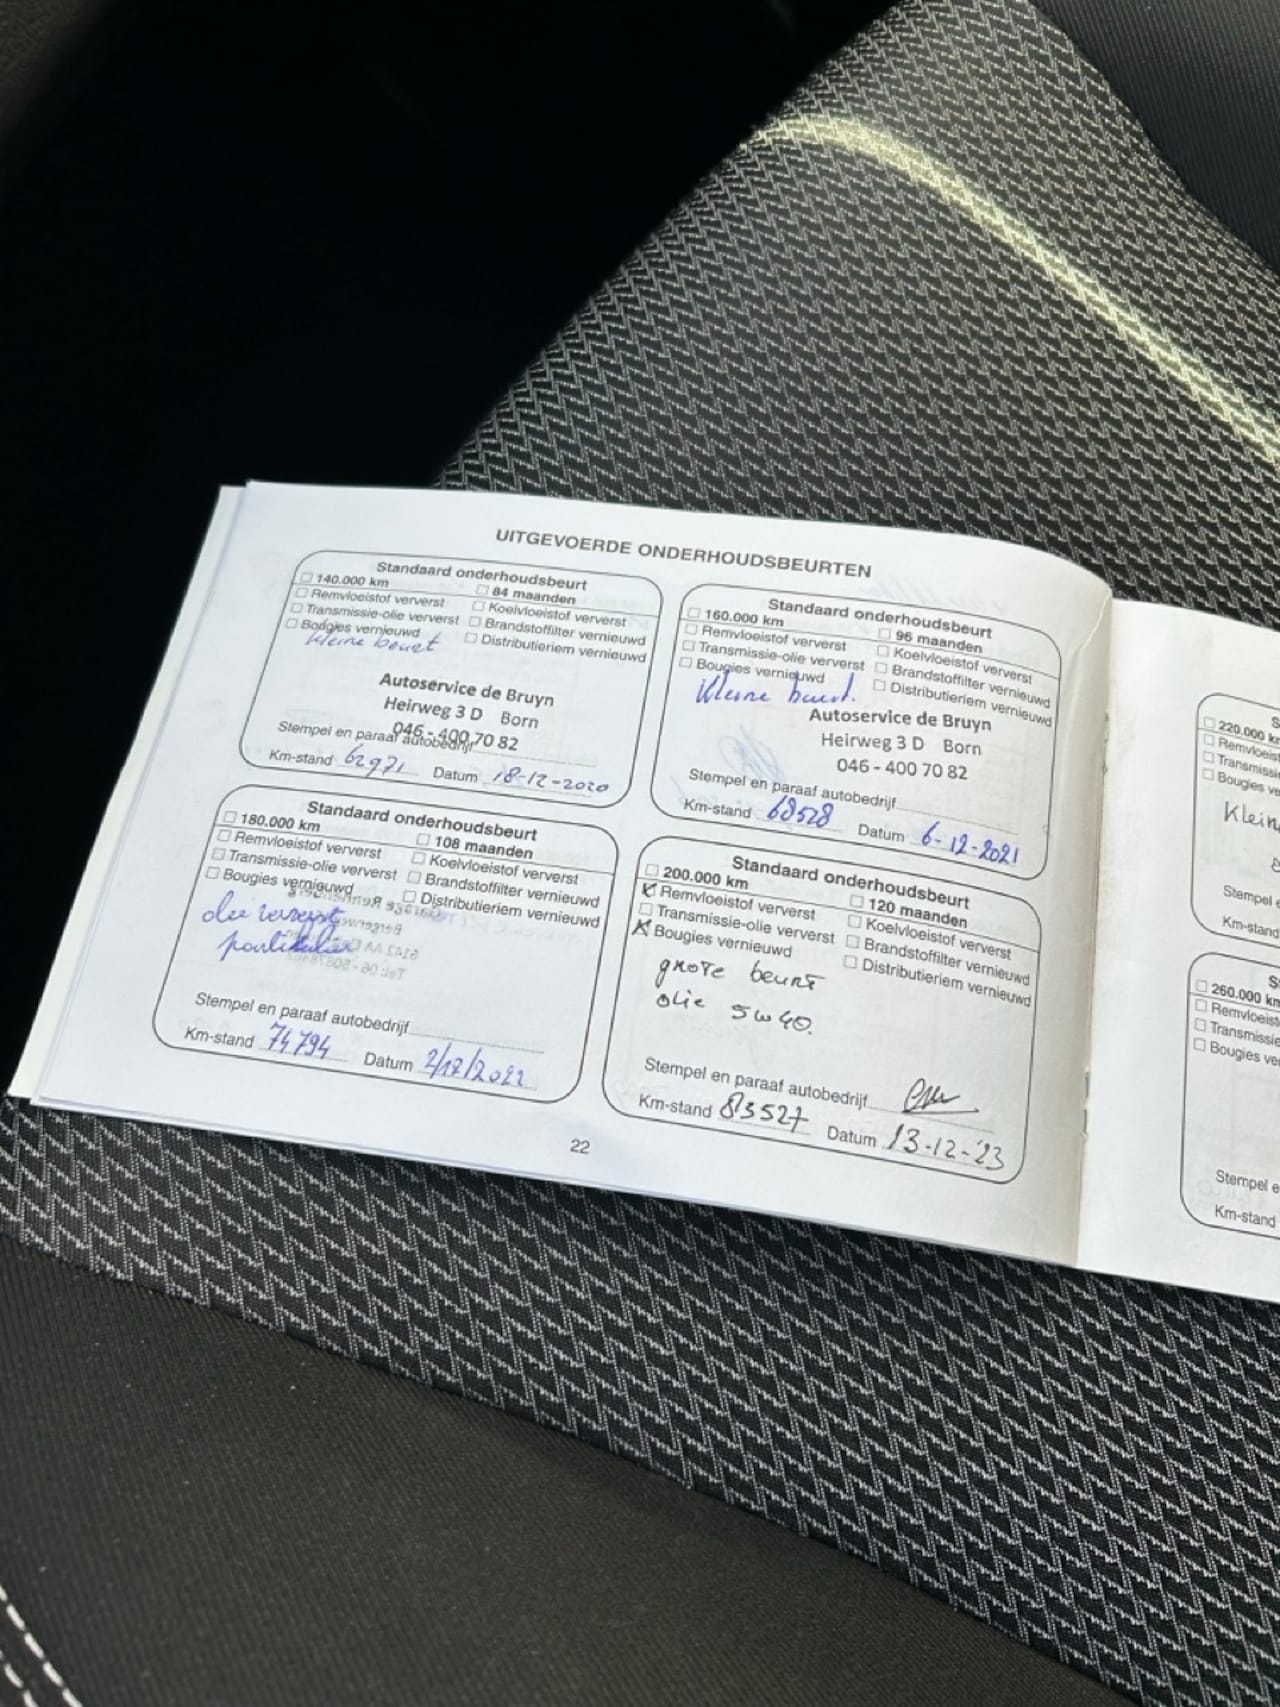 UITGEVOERDE ONDERHOUDSBEURTEN
Standaard onderhoudsbeurt
140.000 km 84 maanden
Remvloeistof ververst Koelvloeistof ververst
Transmissie-olie ververst Brandstoffilter vernieuwd
Bougies vernieuwd Distributieriem vernieuwd
kleine beurt
Autoservice de Bruyn
Heirweg 3 D Born
046 - 400 70 82
Stempel en paraaf autobedrijf
Km-stand 62971 Datum 18-12-2020
Standaard onderhoudsbeurt
160.000 km 96 maanden
Remvloeistof ververst Koelvloeistof ververst
Transmissie-olie ververst Brandstoffilter vernieuwd
Bougies vernieuwd Distributieriem vernieuwd
Kleine beurt.
Autoservice de Bruyn
Heirweg 3 D Born
046 - 400 70 82
Stempel en paraaf autobedrijf
Km-stand 68528 Datum 6-12-2021
Standaard onderhoudsbeurt
180.000 km 108 maanden
Remvloeistof ververst Koelvloeistof ververst
Transmissie-olie ververst Brandstoffilter vernieuwd
Bougies vernieuwd Distributieriem vernieuwd
olie ververst
partikulier
Stempel en paraaf autobedrijf
Km-stand 74794 Datum 2/12/2022
Standaard onderhoudsbeurt
200.000 km 120 maanden
Remvloeistof ververst Koelvloeistof ververst
Transmissie-olie ververst Brandstoffilter vernieuwd
Bougies vernieuwd Distributieriem vernieuwd
grote beurt
olie 5w40.
Stempel en paraaf autobedrijf
Km-stand 83527 Datum 13-12-'23
22
220.000 km
Remvloeist
Transmissie
Bougies ve
Klein
Stempel e
Km-stand
260.000 km
Remvloeis
Transmissie
Bougies ve
Stempel e
Km-stand